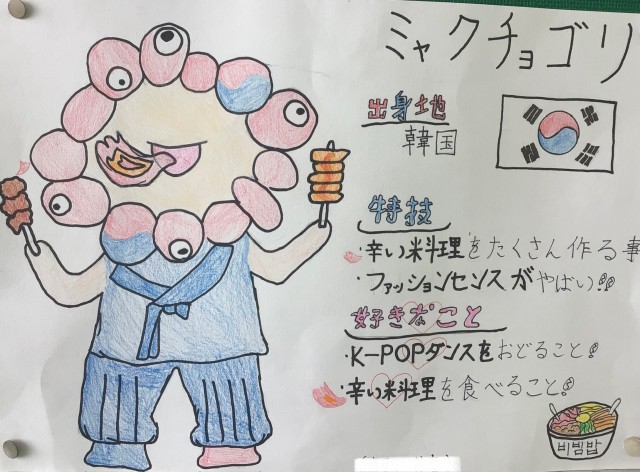 ミャクチョゴリ
出身地
韓国
特技
・辛い料理をたくさん作る事
・ファッションセンスがやばい!!
好きなこと
・K-POPダンスをおどること!
・辛い料理を食べること!
비빔밥